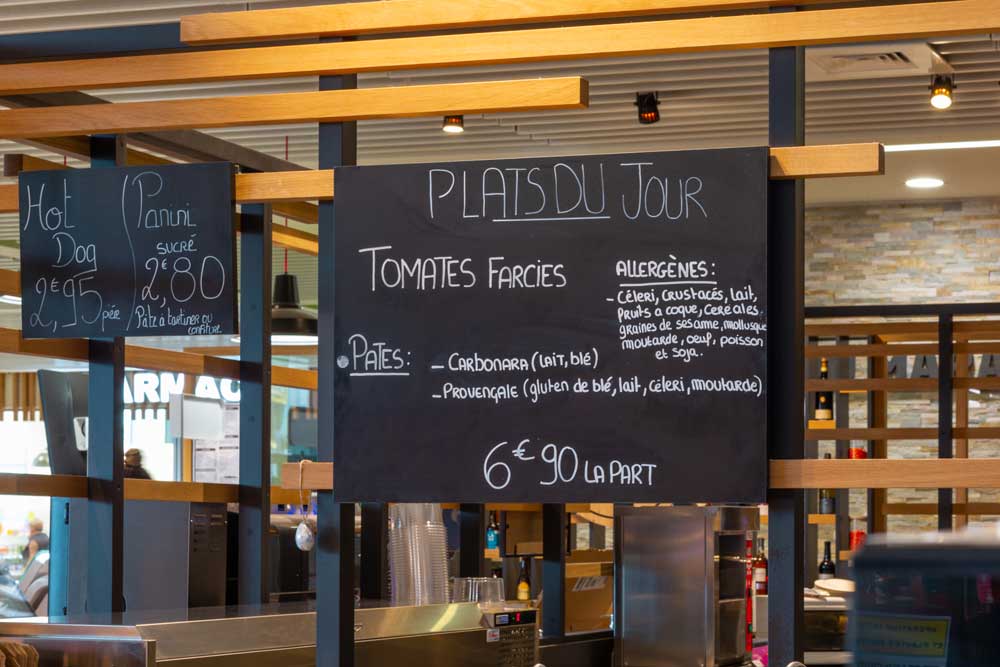 Hot
Dog
2€95 pièce
Panini
SUCRÉ
2€80
Pâte à tartiner ou
confiture
PLATS DU JOUR
TOMATES FARCIES
ALLERGÈNES:
- Céleri, crustacés, lait,
fruits à coque, céréales
graines de sesame, mollusque
moutarde, oeuf, poisson
et soja.
PATES:
- CARBONARA (lait, blé)
- PROVENÇALE (gluten de blé, lait, céleri, moutarde)
6€90 LA PART
ARNAC